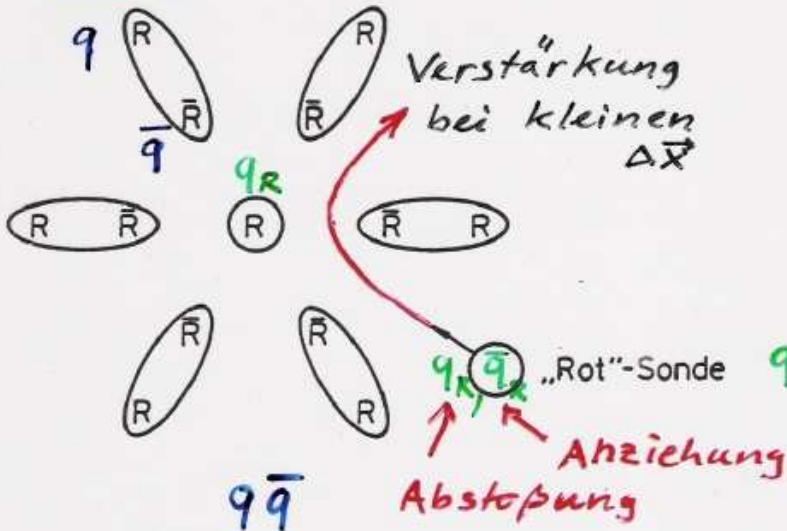 q R R Verstärkung
R̅ R̅ bei kleinen
q̅ Δx⃗
q_R
R R̅ R R̅ R
R̅ R̅
q_R, q̅_R „Rot"-Sonde q
R R Anziehung
Abstoßung
q q̅